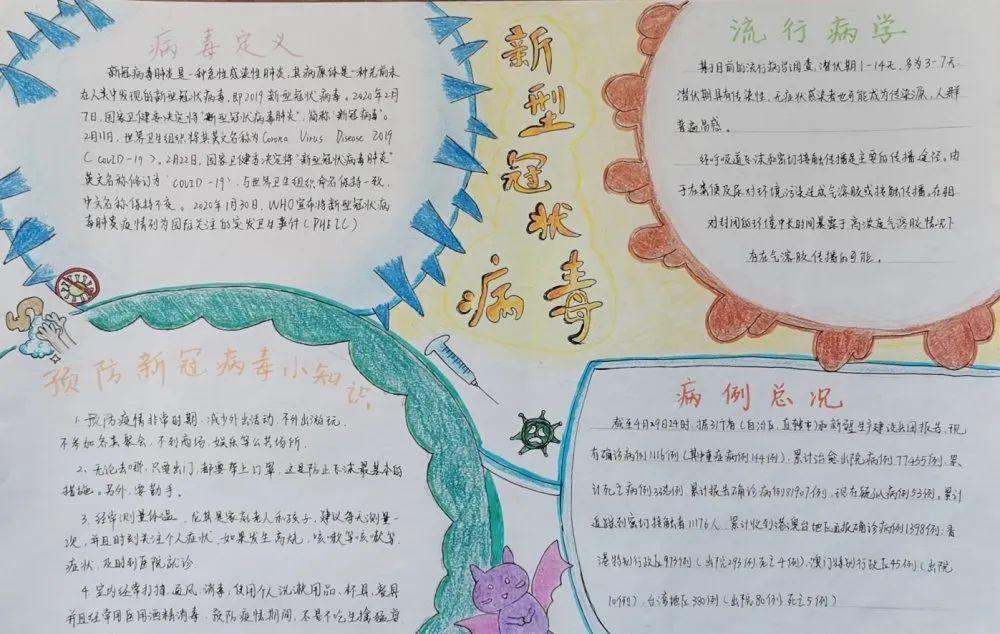 病毒定义
新冠病毒肺炎是一种急性感染性肺炎,其病原体是一种先前未
在人类中发现的新型冠状病毒,即2019新型冠状病毒。2020年2月
7日,国家卫健委决定将"新型冠状病毒肺炎",简称"新冠病毒"。
2月11日,世界卫生组织将其英文名称为Corona Virus Disease 2019
(COVID-19)。2月22日,国家卫健委决定将"新型冠状病毒肺炎"
英文名称修订为"COVID-19",与世界卫生组织命名保持一致,
中文名称保持不变。2020年1月30日,WHO宣布将新型冠状病
毒肺炎疫情列为国际关注的突发卫生事件(PHEIC)
新型冠状病毒
流行病学
基于目前的流行病学调查,潜伏期1-14天,多为3-7天
潜伏期具有传染性,无症状感染者也可能成为传染源,人群
普遍易感。
经呼吸道飞沫和密切接触传播是主要的传播途径。由
于在粪便及尿对环境污染造成气溶胶或接触传播。在相
对封闭的环境中长时间暴露于高浓度气溶胶情况下
存在气溶胶传播的可能。
预防新冠病毒小知识
1、预防疫情非常时期,减少外出活动,不外出游玩,
不参加各类聚会,不到商场、娱乐等公共场所。
2、无论去哪,只要出门,都要带上口罩,这是防止飞沫最基本的
措施。另外,要勤手。
3、经常测量体温,尤其是家有老人和孩子,建议每天测量一
次,并且时刻关注个人症状,如果发生高烧,咳嗽等
症状,及时到医院就诊
4、室内经常打扫,通风,消毒,使用个人洗漱用品,杯具,餐具
并且经常用医用酒精消毒,预防疫情期间,不要吃生擒猛兽
病例总况
截至4月29日24时,据31个省(自治区、直辖市)和新疆生产建设兵团报告,现
有确诊病例1116例(其中重症病例144例),累计治愈出院病例77455例,累
计死亡病例例,累计报告确诊病例81907例,现有疑似病例53例。累计
追踪到密切接触者11176人,累计收到港澳台地区通报确诊病例1398例:香
港特别行政区973例(出院293例,死亡4例),澳门特别行政区45例(出院
10例),台湾地区380例(出院80例,死亡5例)